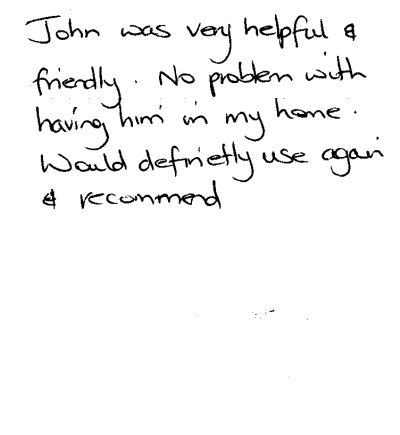 John was very helpful &
friendly. No problem with
having him in my home.
Would definietly use again
& recommend